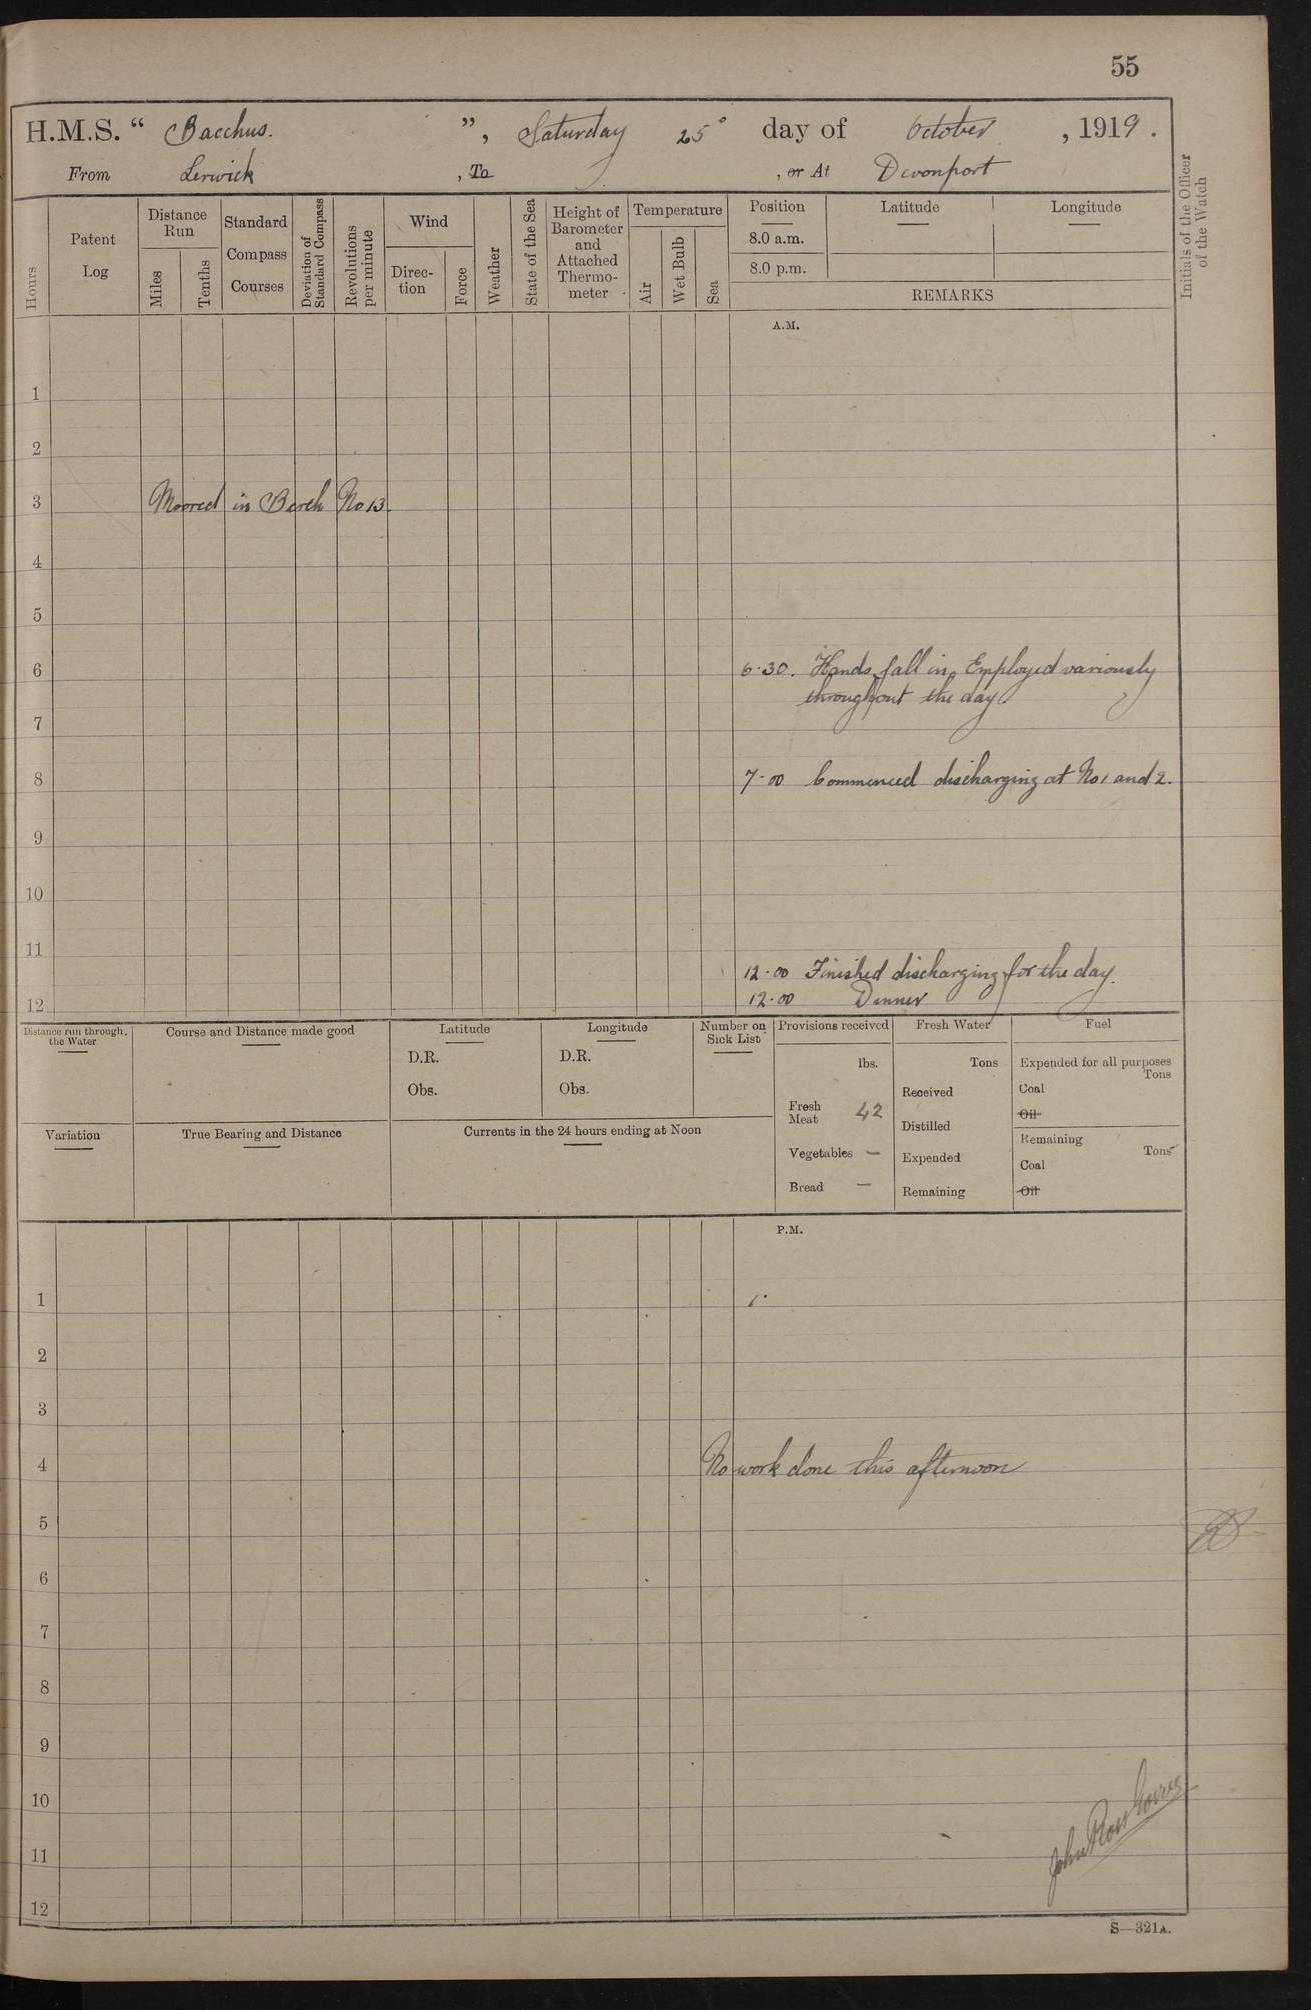 55
H.M.S. “ Bacchus. ”, Saturday 25° day of October , 1919 .
From Lerwick , To , or At Devonport
Hours
Patent Log
Distance Run
Miles
Tenths
Standard Compass Courses
Deviation of Standard Compass
Revolutions per minute
Wind
Direc-tion
Force
Weather
State of the Sea
Height of Barometer and Attached Thermo-meter
Temperature
Air
Wet Bulb
Sea
Position
8.0 a.m.
8.0 p.m.
Latitude
Longitude
REMARKS
Initials of the Officer of the Watch
A.M.
1
2
3 Moored in Berth No 13.
4
5
6 6·30. Hands fall in, Employed variously
throughout the day
7
8 7·00 Commenced discharging at No 1 and 2.
9
10
11
12·00 Finished discharging for the day.
12 12·00 Dinner
Distance run through the Water
Course and Distance made good
Latitude
D.R.
Obs.
Longitude
D.R.
Obs.
Number on Sick List
Provisions received
lbs.
Fresh Meat 42
Vegetables —
Bread —
Fresh Water
Tons
Received
Distilled
Expended
Remaining
Fuel
Expended for all purposes
Tons
Coal
Oil
Remaining
Tons
Coal
Oil
Variation
True Bearing and Distance
Currents in the 24 hours ending at Noon
P.M.
1
2
3
4 No work done this afternoon
5
6
7
8
9
10
11
12
John
S—321A.